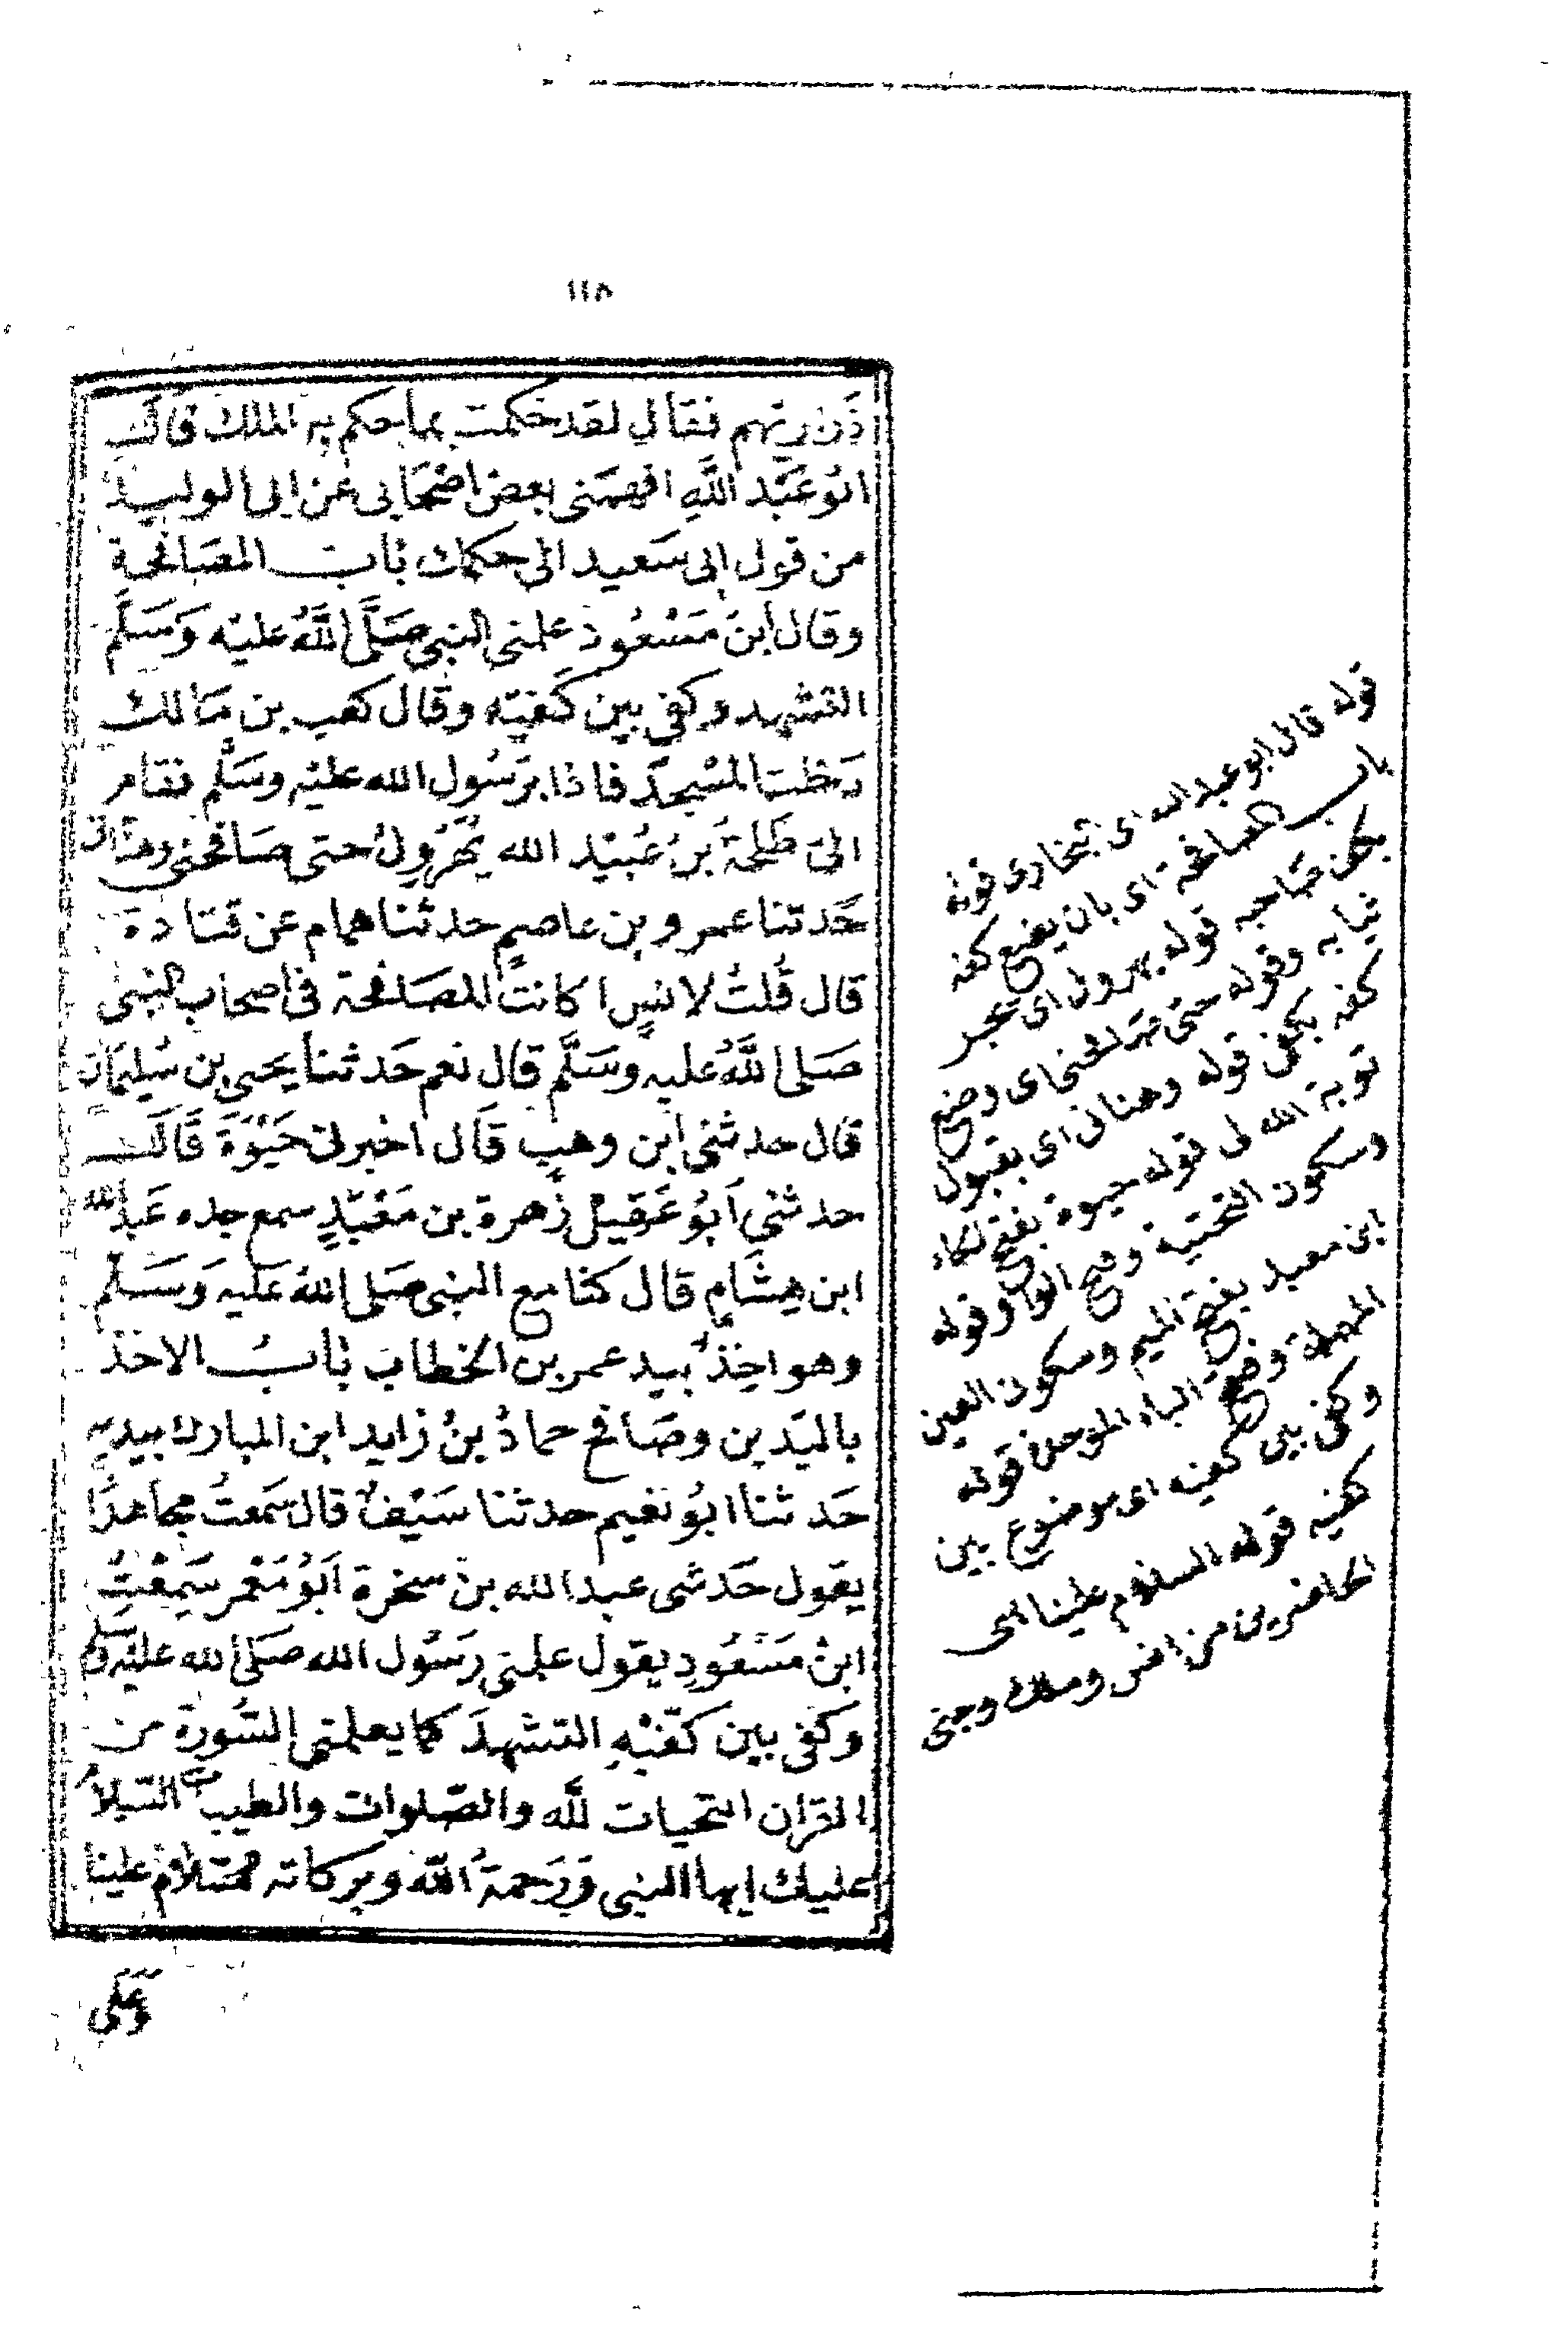 ١١٥
ذراريهم فقال لقد حكمت بما حكم به الملك قال
ابو عبد الله افهمنى بعض اصحابى عن ابى الوليد
من قول ابى سعيد الى حكمك باب المصافحة
وقال ابن مسعود علمنى النبى صلى الله عليه وسلم
التشهد وكفى بين كفيه وقال كعب بن مالك
دخلت المسجد فاذا برسول الله عليه وسلم فقام
الى طلحة بن عبيد الله يهرول حتى صافحنى وهنانى
حدثنا عمرو بن عاصم حدثنا همام عن قتادة
قال قلت لانس ا كانت المصافحة فى اصحاب النبى
صلى الله عليه وسلم قال نعم حدثنا يحيى بن سليمان
قال حدثنى ابن وهب قال اخبرنى حيوة قال
حدثنى ابو عقيل زهرة بن معبد سمع جده عبد الله
ابن هشام قال كنا مع النبى صلى الله عليه وسلم
وهو اخذ بيد عمر بن الخطاب باب الاخذ
باليدين وصافح حماد بن زايد ابن المبارك بيديه
حدثنا ابو نعيم حدثنا سيف قال سمعت مجاهدا
يقول حدثنى عبد الله بن سخرة ابو معمر سمعت
ابن مسعود يقول علمنى رسول الله صلى الله عليه وسلم
وكفى بين كفيه التشهد كما يعلمنى السورة من
القران التحيات لله والصلوات والطيبت السلام
عليك ايها النبى ورحمة الله وبركاته السلام علينا
وعلى
قوله قال ابو عبد الله اى البخارى قوله
باب المصافحة اى بان يضع كفه
بكف صاحبه قوله يهرول اى يجر
ثيابه وقوله حتى صافحنى اى وضع
كفه بكفى قوله وهنانى اى بقبول
توبة الله لى قوله حيوة بفتح الحاء
وسكون التحتية وفتح الواو قوله
ابن معبد بفتح الميم وسكون العين
المهملة وفتح الباء الموحدة قوله
وكفى بين كفيه اى موضوع بين
كفيه قوله السلام علينا اى
الحاضرين من انس وملك وجنى